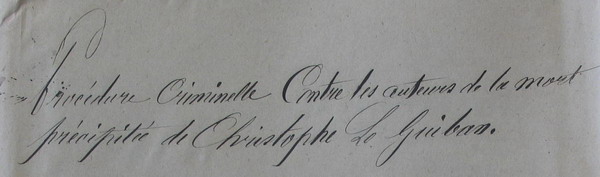 Procédure Criminelle Contre les auteurs de la mort
précipitée de Christophe Le Guiban.